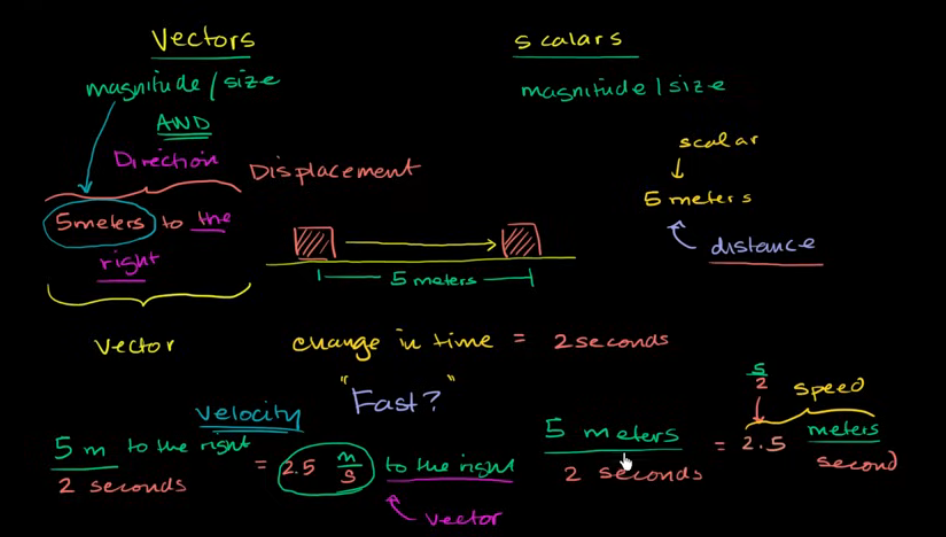 Vectors
scalars
magnitude / size
magnitude | size
AND
Direction
Displacement
scalar
5 meters
distance
5meters to the
right
5 meters
vector
change in time = 2 seconds
"Fast?"
velocity
5 m to the right
2 seconds
= 2.5 m
s
to the right
vector
5 meters
2 seconds
=
5
2
2.5
speed
meters
second